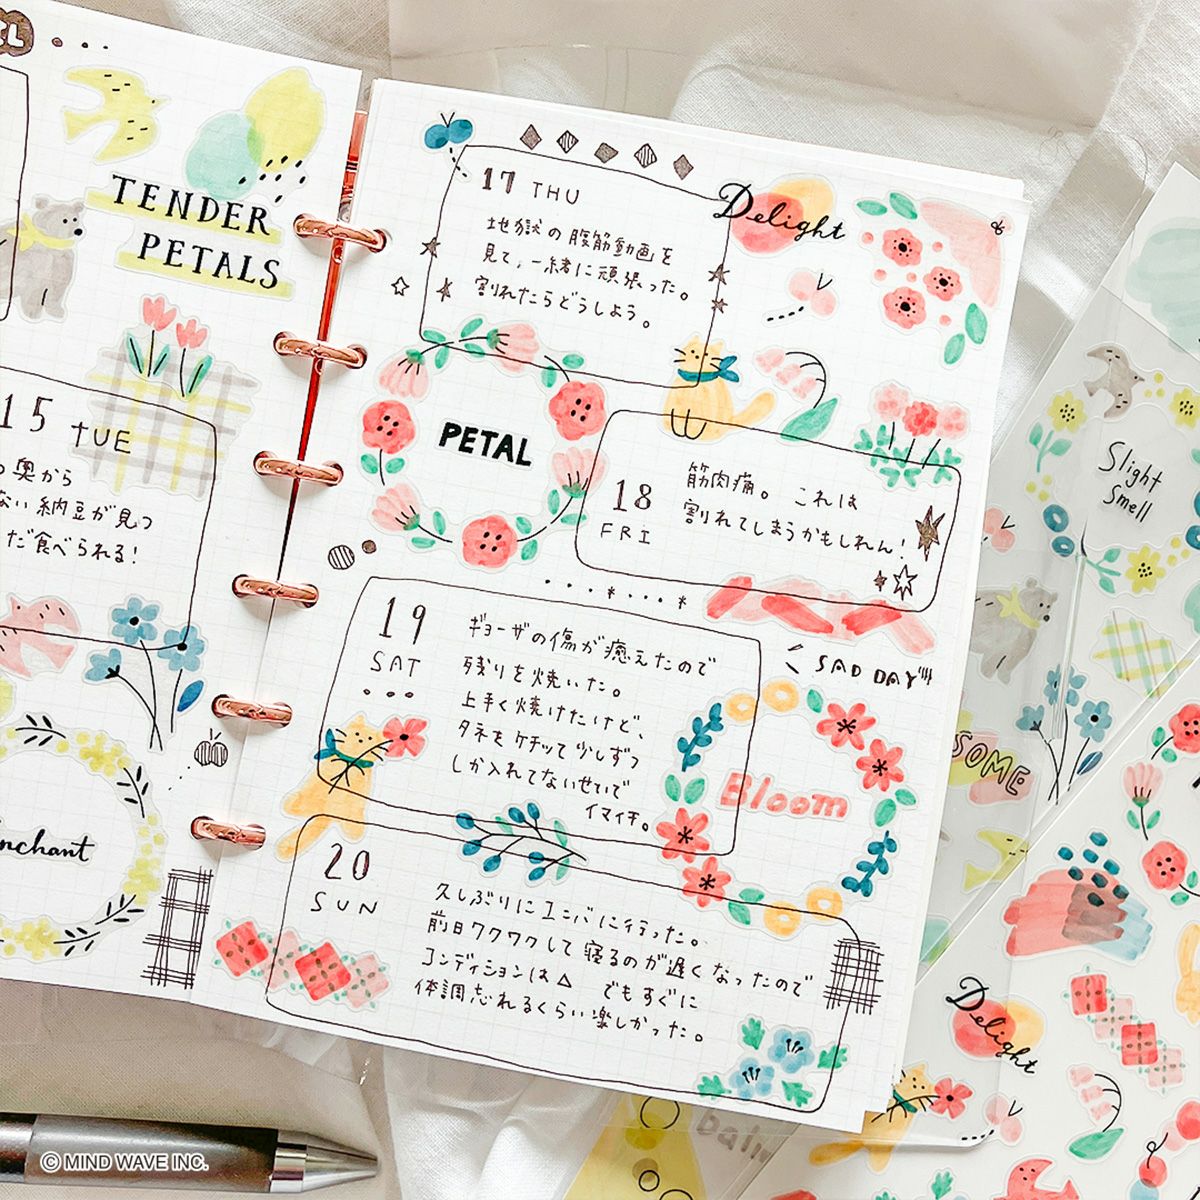 TENDER
PETALS
15 TUE
奥から
ない納豆が見つ
だ食べられる!
nchant
17 THU
地獄の腹筋動画を
見て、一緒に頑張った。
割れたらどうしよう。
Delight
PETAL
18
FRI
筋肉痛。これは
割れてしまうかもしれん!
SAD DAY
19
SAT
ギョーザの傷が癒えたので
残りを焼いた。
上手く焼けたけど、
タネをケチッて少しずつ
しか入れてないせいで
イマイチ。
Bloom
20
SUN
久しぶりにユニバに行った。
前日ワクワクして寝るのが遅くなったので
コンディションは△ でもすぐに
体調忘れるくらい楽しかった。
Slight
Smell
SOME
Delight
balm
© MIND WAVE INC.